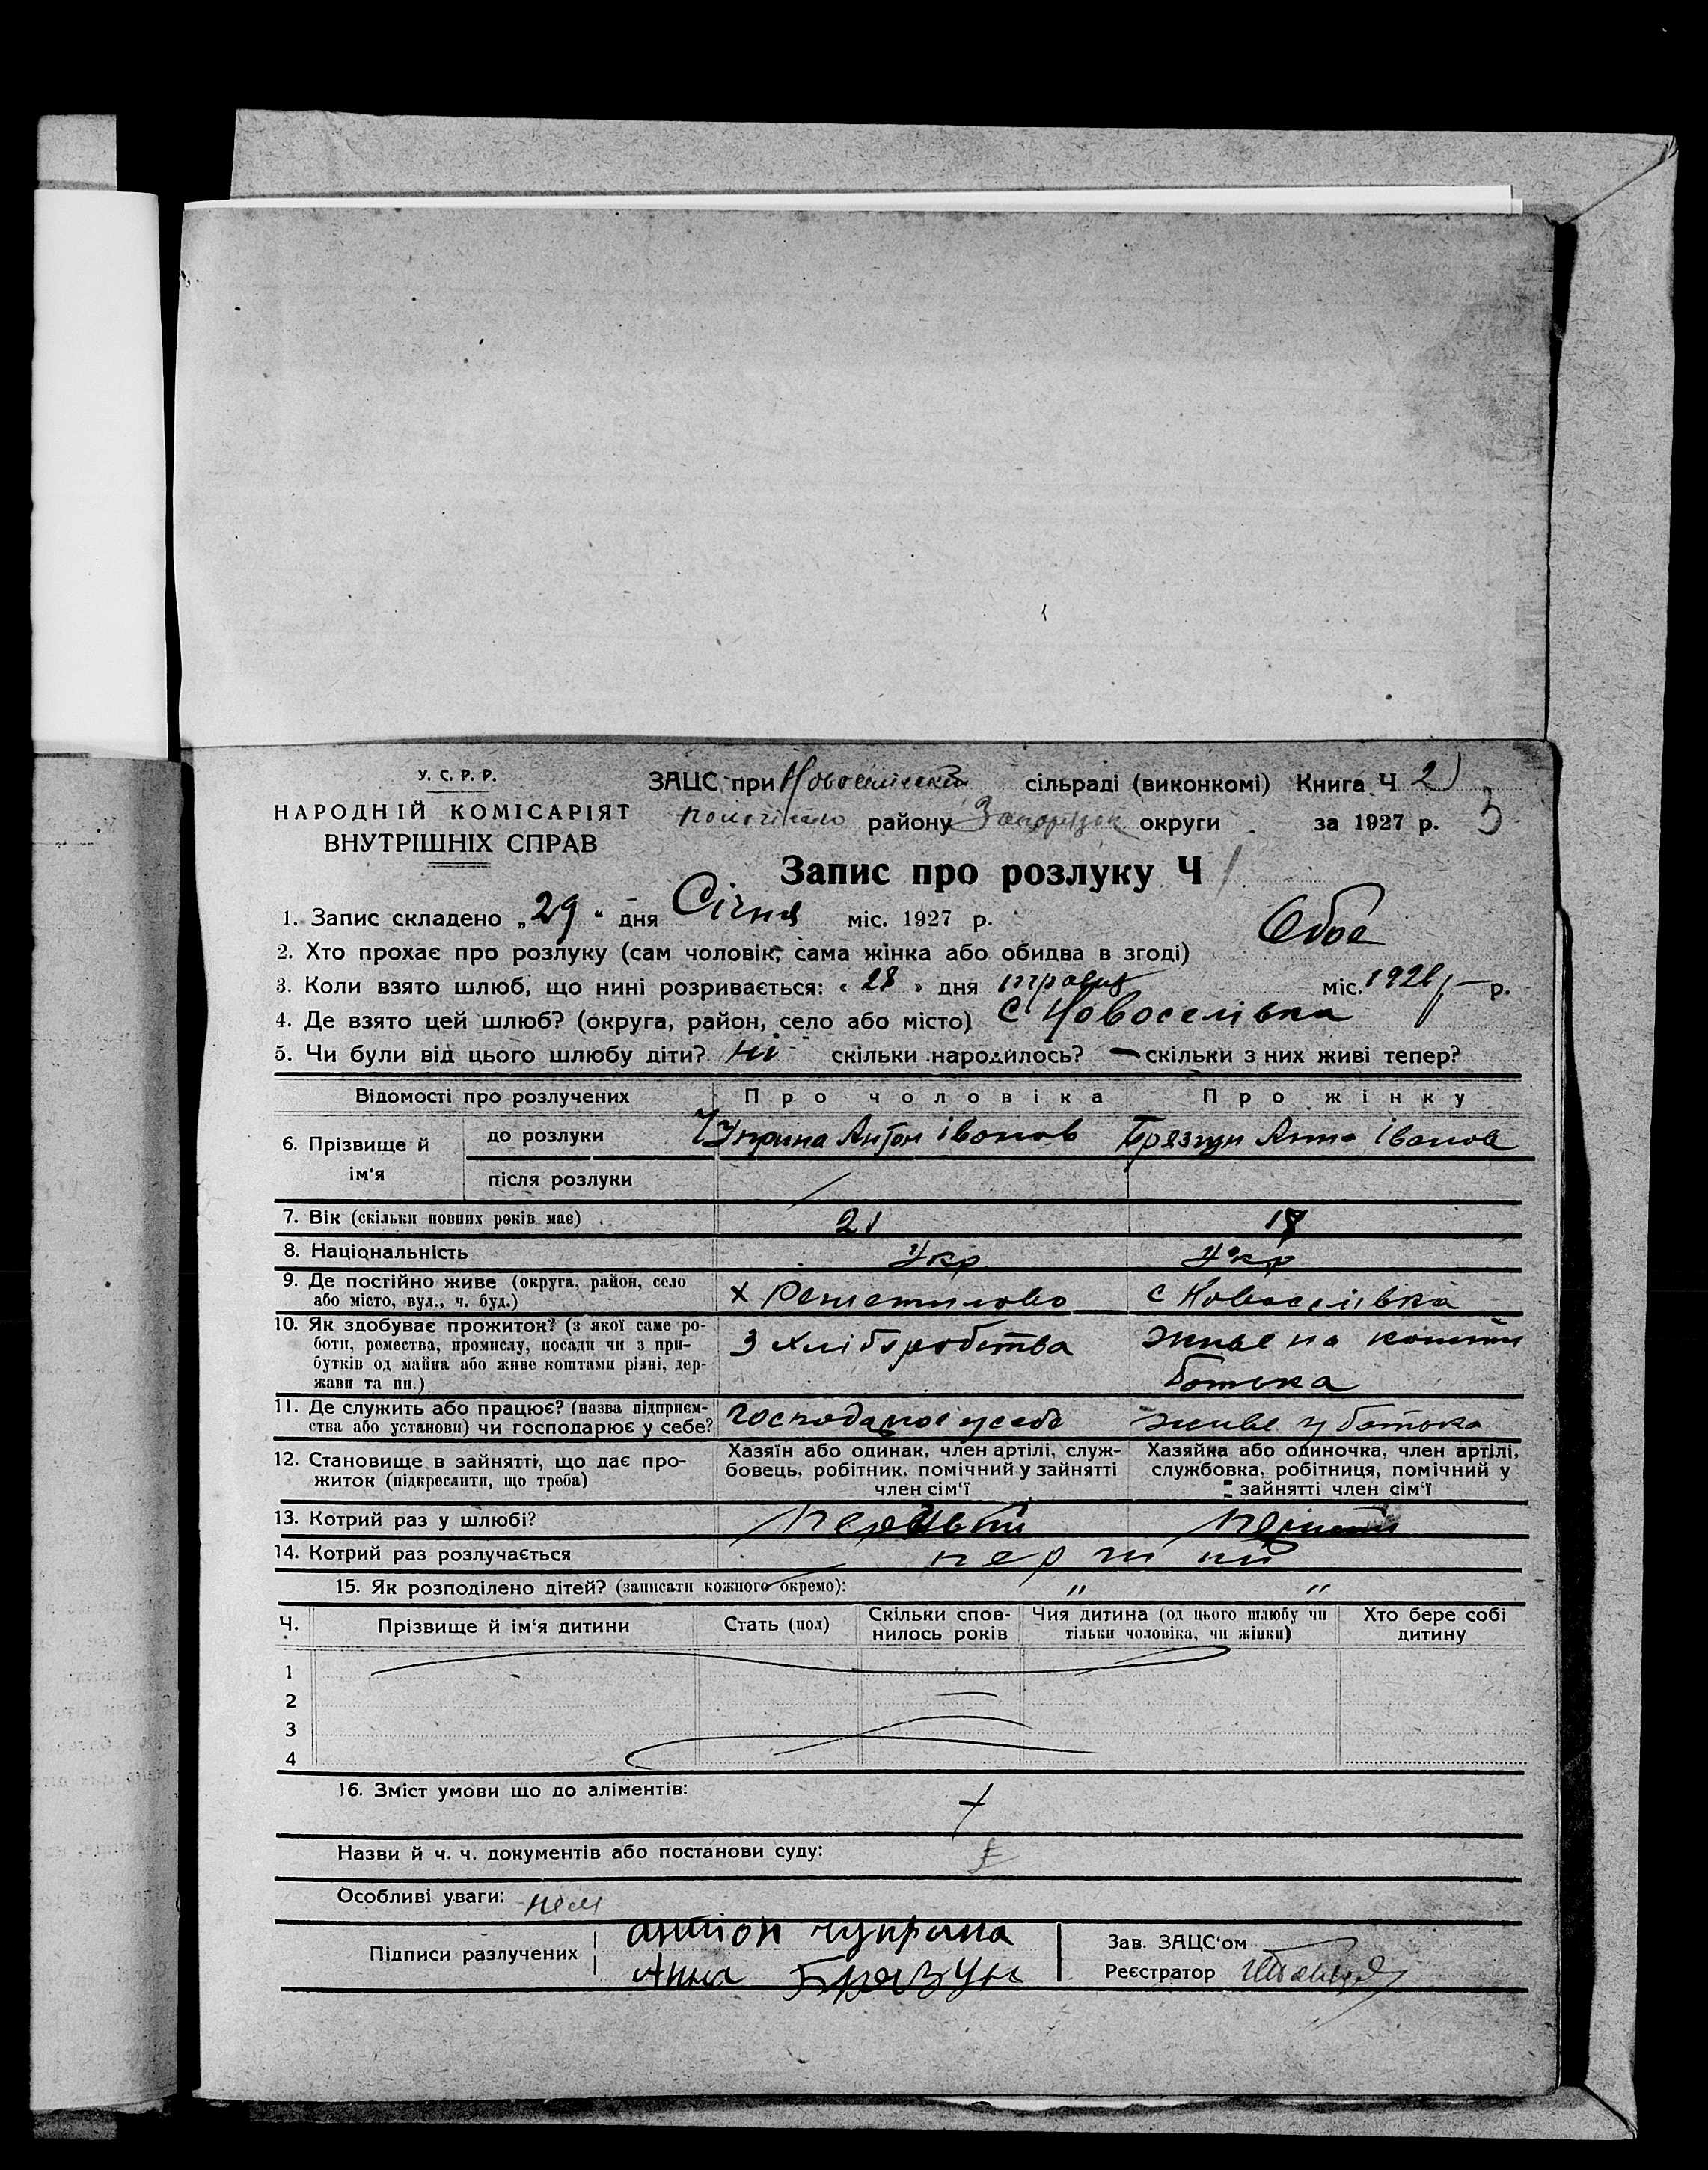 У. С. Р. Р.
НАРОДНІЙ КОМІСАРІЯТ
ВНУТРІШНІХ СПРАВ
ЗАЦС при сільраді (виконкомі) Книга Ч 2
району округи за 1927 р. 3
Запис про розлуку Ч 1
1. Запис складено „29“ дня Січня міс. 1927 р.
2. Хто прохає про розлуку (сам чоловік, сама жінка або обидва в згоді) Обоє
3. Коли взято шлюб, що нині розривається: «28» дня травня міс. р.
4. Де взято цей шлюб? (округа, район, село або місто) с Новоселівка
5. Чи були від цього шлюбу діти? ні скільки народилось? — скільки з них живі тепер?
Відомості про розлучених Про чоловіка Про жінку
6. Прізвище й ім‘я
до розлуки Чуприна Антон Іванов Брязгун Анна Іванов
після розлуки
7. Вік (скільки повних років має) 21 18
8. Національність Укр Укр
9. Де постійно живе (округа, район, село х Решетилово с Новоселівка
або місто, вул., ч. буд.)
10. Як здобуває прожиток? (з якої саме ро- З хліборобства живе на кошти
боти, ремества, промислу, посади чи з при- батька
бутків од майна або живе коштами рідні, дер-
жави та ин.)
11. Де служить або працює? (назва підприєм- живе у батька
ства або установи) чи господарює у себе?
12. Становище в зайнятті, що дає про-
житок (підкреслити, що треба)
Хазяїн або одинак, член артілі, служ-
бовець, робітник, помічний у зайнятті
член сім‘ї
Хазяйка або одиночка, член артілі,
службовка, робітниця, помічний у
зайнятті член сім‘ї
13. Котрий раз у шлюбі?
14. Котрий раз розлучається
15. Як розподілено дітей? (записати кожного окремо): " "
Ч. Прізвище й ім‘я дитини Стать (пол) Скільки спов-
нилось років Чия дитина (од цього шлюбу чи
тільки чоловіка, чи жінки) Хто бере собі
дитину
1
2
3
4
16. Зміст умови що до аліментів:
Назви й ч. ч. документів або постанови суду:
Особливі уваги:
Підписи разлучених
антон чуприна
Анна Брязгун
Зав. ЗАЦС‘ом
Реєстратор